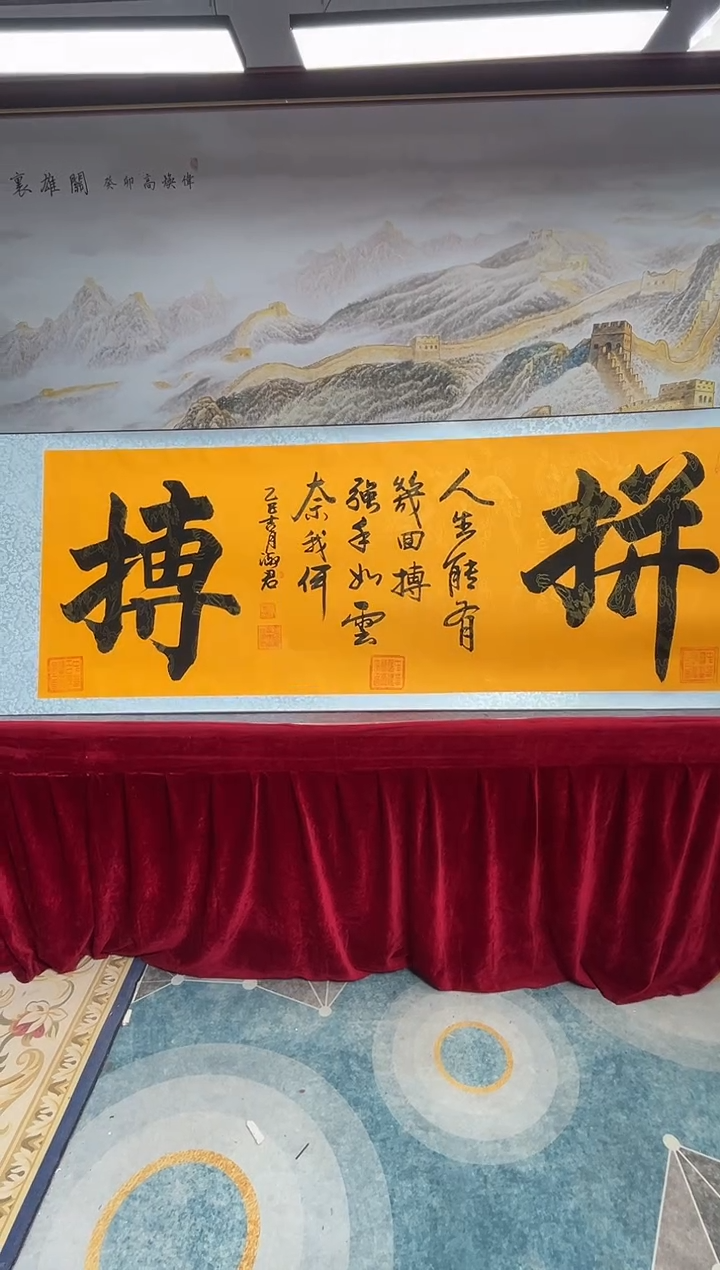 裏雄關
癸卯高煥偉
拼
人生能有
幾回搏
強手如雲
奈我何
乙巳吉月海君
搏